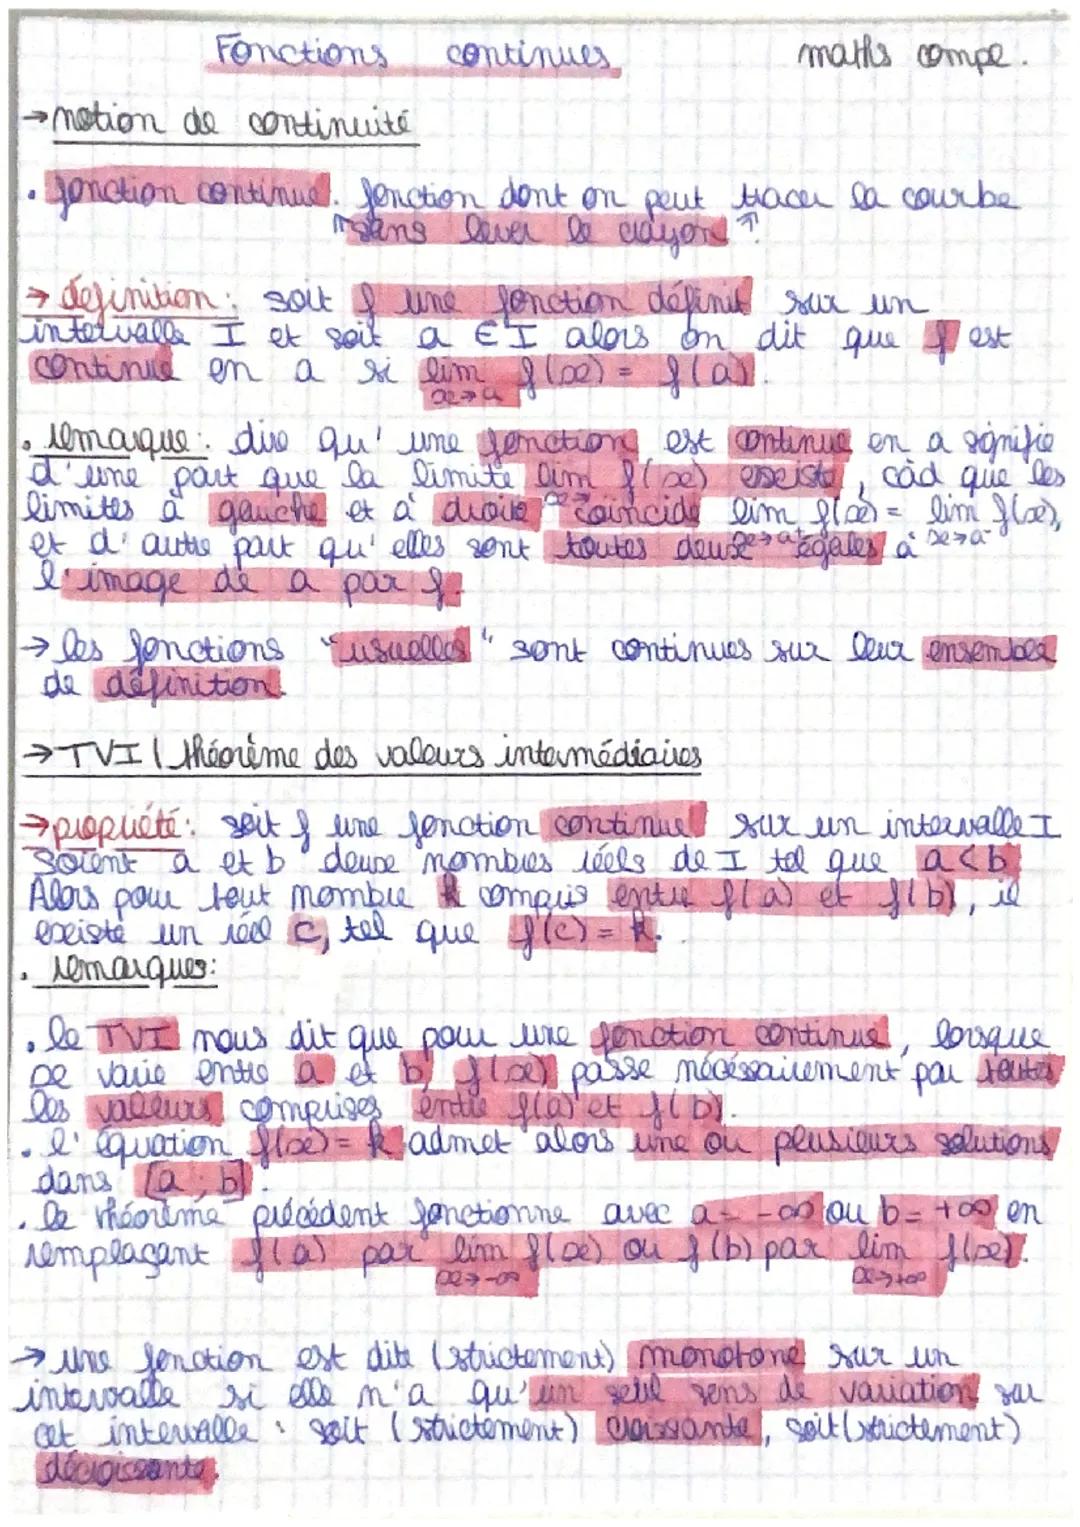 Fonctions continues maths compe.
→ notion de continuité
. fonction continue. fonction dont on peut tracer la courbe
"sans lever le crayon".
→ définition : soit f une fonction définit sur un
intervalle I et soit a ∈ I alors on dit que f est
continue en a si lim f(x) = f(a).
x→a
. remarque : dire qu' une fonction est continue en a signifie
d'une part que la limite lim f(x) existe, càd que les
x→a
limites à gauche et à droite coincide lim f(x) = lim f(x),
x→a⁺ x→a⁻
et d'autre part qu' elles sont toutes deux égales à
l'image de a par f.
→ les fonctions "usuelles" sont continues sur leur ensembles
de définition.
→ TVI | théorème des valeurs intermédiaires
→ propriété : soit f une fonction continue sur un intervalle I
Soient a et b deux nombres réels de I tel que a < b
Alors pour tout nombre k compris entre f(a) et f(b), il
existe un réel c, tel que f(c) = k.
. remarques :
. le TVI nous dit que pour une fonction continue, lorsque
x varie entre a et b, f(x) passe nécessairement par toutes
les valeurs comprises entre f(a) et f(b).
. l'équation f(x) = k admet alors une ou plusieurs solutions
dans [a ; b].
. le théorème précédent fonctionne avec a = -∞ ou b = +∞ en
remplaçant f(a) par lim f(x) ou f(b) par lim f(x).
x→-∞ x→+∞
→ une fonction est dite (strictement) monotone sur un
intervalle si elle n'a qu'un seul sens de variation sur
cet intervalle : soit (strictement) croissante, soit (strictement)
décroissante.